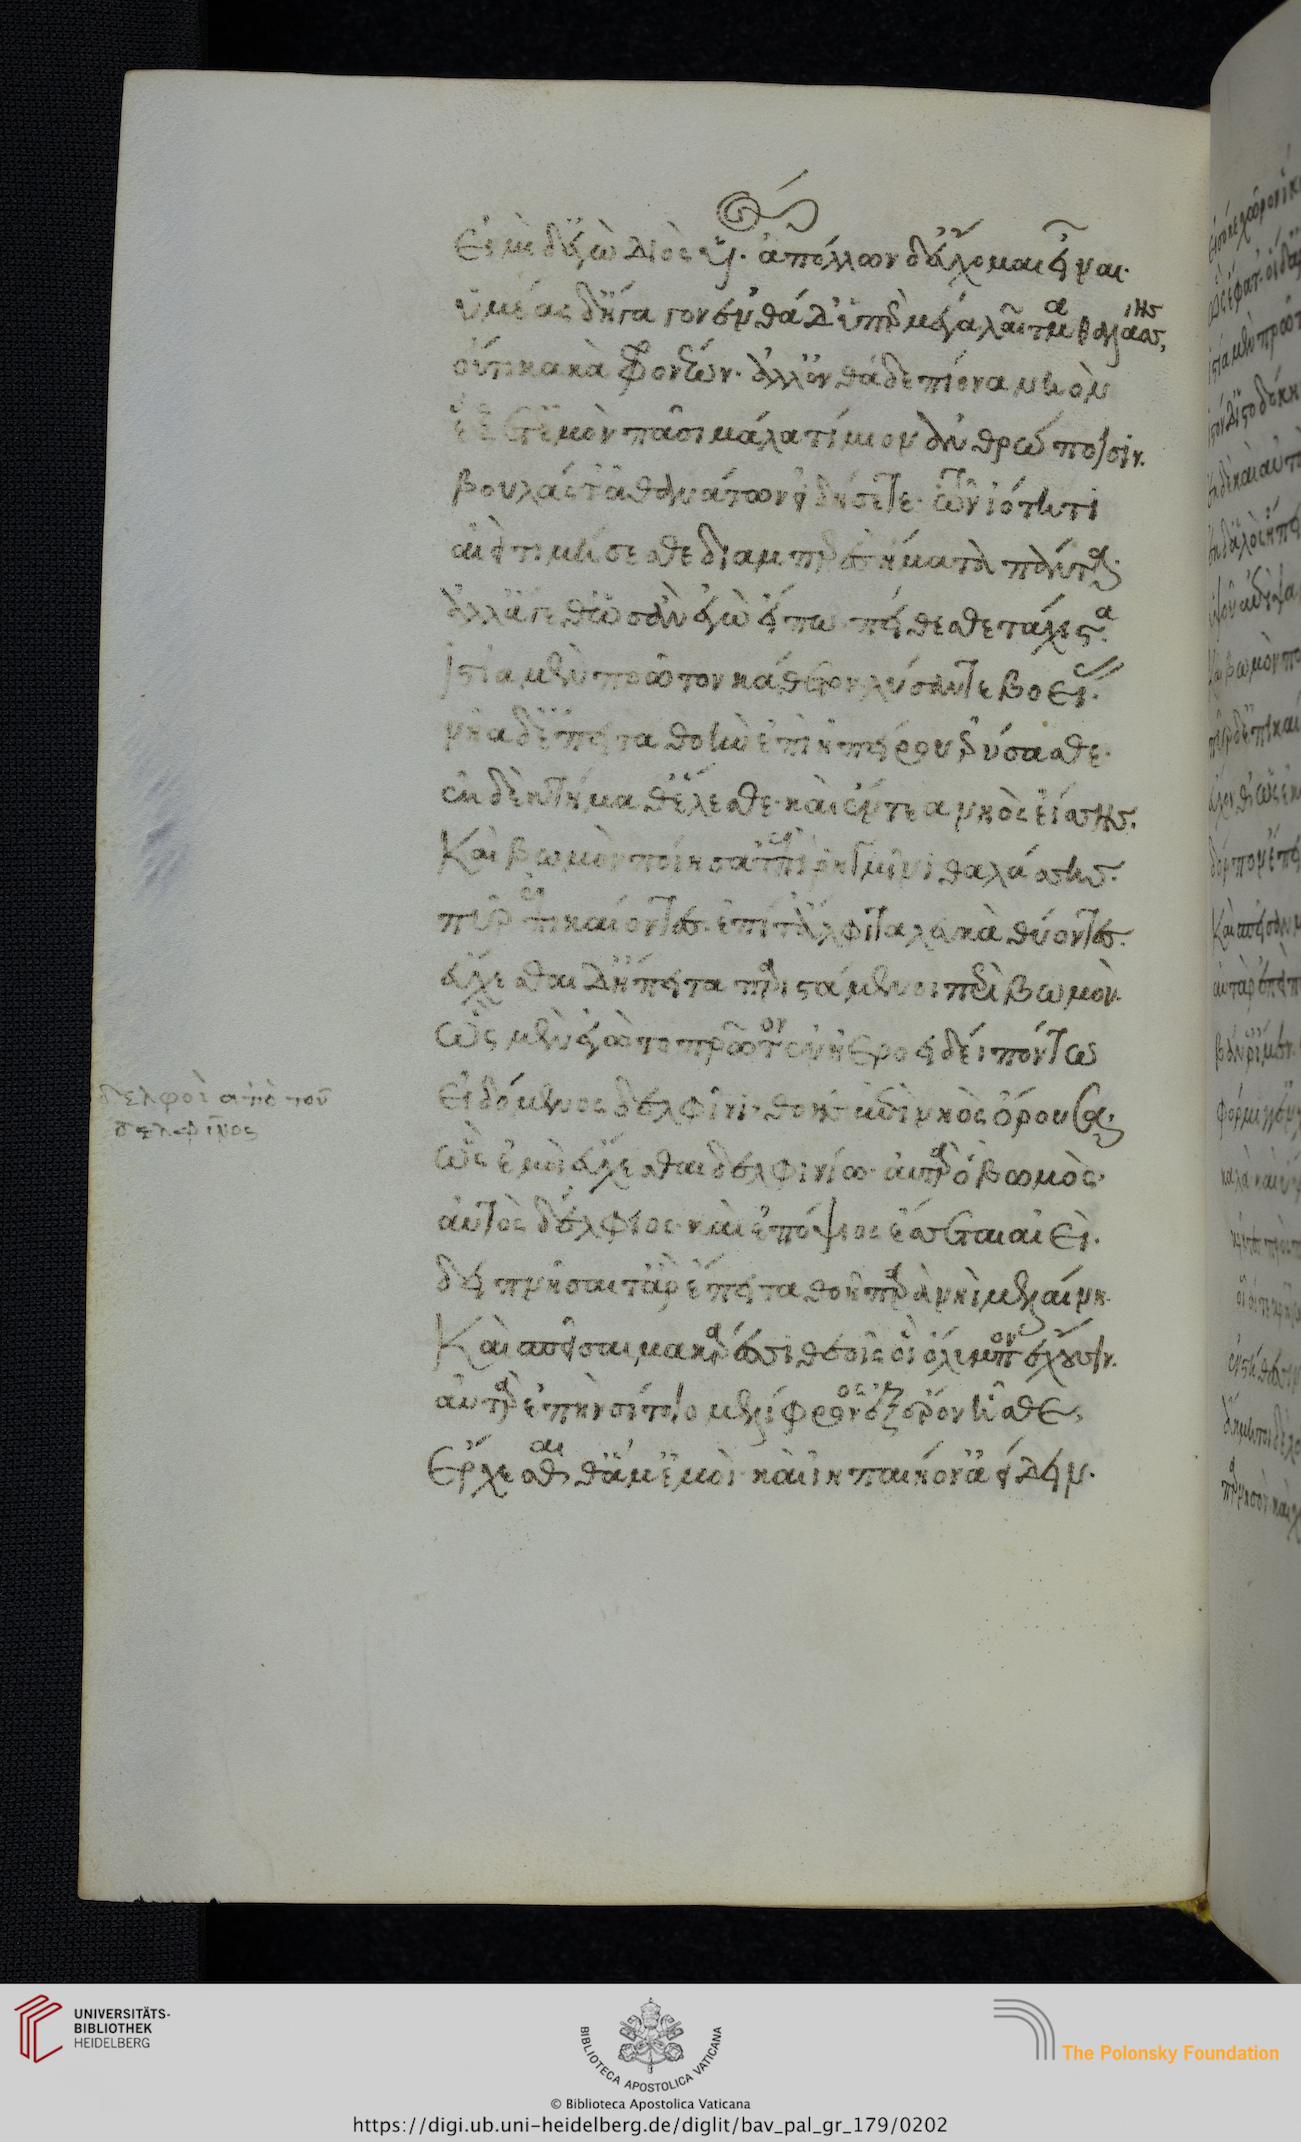 εἰμὶ δ' ἐγὼ Διὸς υἱὸς· ἀπόλλων δ' εὔχομαι εἶναι·
ὑμέας δ' ἤγαγον ἐνθάδ' ὑπὲρ μέγα λαῖτμα θαλάσσης,
οὔτι κακὰ φρονέων· ἀλλ' ἐνθάδε πίονα νηὸν
ἕξετ' ἐμὸν πᾶσι μάλα τίμιον ἀνθρώποισιν.
βουλάς τ' ἀθανάτων εἰδήσετε· τῶν ἰότητι
αἰεὶ τιμήσεσθε διαμπερὲς ἤματα πάντα·
ἀλλ' ἄγεθ' ὡς ἂν ἐγὼ εἴπω· πείθεσθε τάχιστα·
ἱστία μὲν πρῶτον κάθετον λύσαντε βοείας·
νῆα δ' ἔπειτα θοὴν ἐπὶ ἠπείρου ἐρύσασθε·
ἐκ δὲ κτήμαθ' ἕλεσθε· καὶ ἔντεα νηὸς ἐίσης.
Καὶ βωμὸν ποιήσατ' ἐπὶ ῥηγμῖνι θαλάσσης.
πῦρ ἐπικαίοντες· ἐπί τ' ἄλφιτα λευκὰ θύοντες.
εὔχεσθαι δ' ἤπειτα παριστάμενοι περὶ βωμὸν.
ὡς μὲν ἐγὼ τὸ πρῶτον ἐν ἠεροειδέι πόντω
εἰδόμενος δελφῖνι· θοῆς ἐπὶ νηὸς ὄρουσα·
ὣς ἐμοὶ εὔχεσθαι δελφινίω· αὐτὰρ ὁ βωμὸς·
αὐτὸς δέλφιος· καὶ ἐπόψιος ἔσσεται αἰεὶ.
δειπνῆσαί τ' ἂρ ἔπειτα θοῇ παρὰ νηὶ μελαίνῃ·
Καὶ σπεῖσαι μακάρεσσι θεοῖς οἳ ὄλυμπον ἔχουσιν.
αὐτὰρ ἐπὴν σίτοιο μελίφρονος ἐξ ἔρον ἧσθε,
Ἔρχεσθαι θ' ἅμ' ἐμοὶ· καὶ ἰηπαιήον' ἀείδειν.
δελφοὶ ἀπὸ τοῦ
δελφῖνος
UNIVERSITÄTS-
BIBLIOTHEK
HEIDELBERG
BIBLIOTECA APOSTOLICA VATICANA
The Polonsky Foundation
© Biblioteca Apostolica Vaticana
https://digi.ub.uni-heidelberg.de/diglit/bav_pal_gr_179/0202